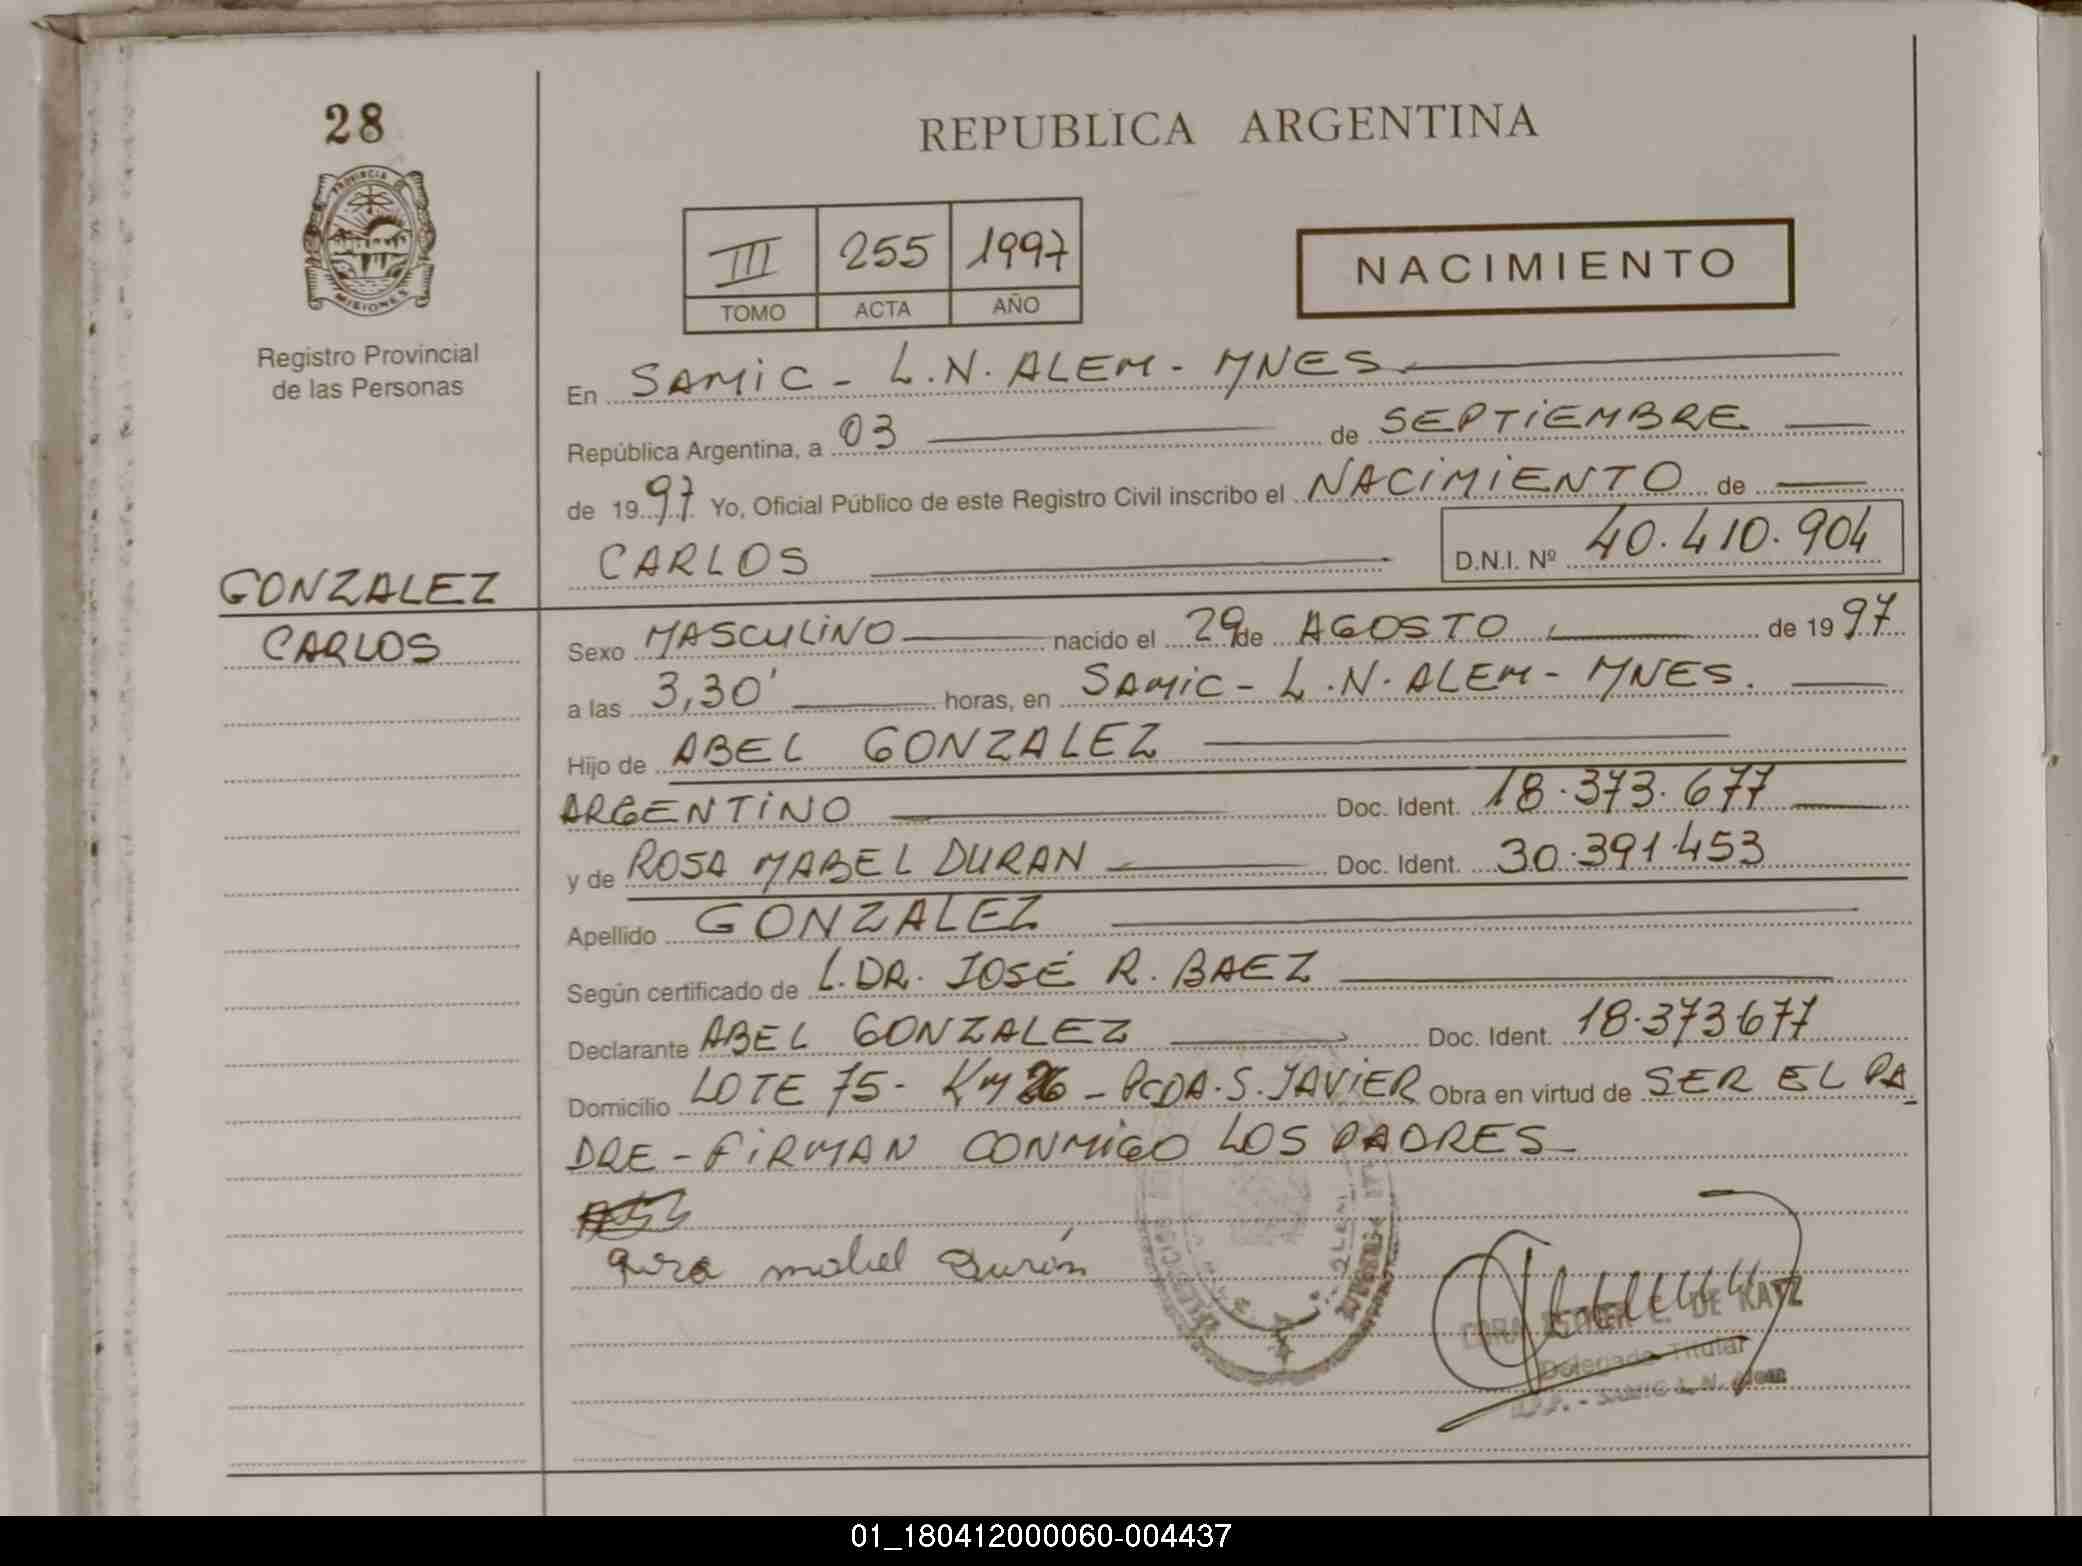 28
PROVINCIA DE
MISIONES
Registro Provincial
de las Personas
GONZALEZ
CARLOS
REPUBLICA ARGENTINA
III 255 1997
TOMO ACTA AÑO
NACIMIENTO
En SAMIC - L.N. ALEM - MNES
República Argentina, a 03 de SEPTIEMBRE
de 1997 Yo, Oficial Público de este Registro Civil inscribo el NACIMIENTO de
CARLOS D.N.I. Nº 40.410.904
Sexo MASCULINO nacido el 29 de AGOSTO de 1997
a las 3,30' horas, en SAMIC - L.N. ALEM - MNES.
Hijo de ABEL GONZALEZ
ARGENTINO Doc. Ident. 18.373.677
y de ROSA MABEL DURAN Doc. Ident. 30.391.453
Apellido GONZALEZ
Según certificado de L. DR. JOSÉ R. BAEZ
Declarante ABEL GONZALEZ Doc. Ident. 18.373677
Domicilio LOTE 75 - KM 26 - PCDA. S. JAVIER Obra en virtud de SER EL PA
DRE - FIRMAN CONMIGO LOS PADRES
mabel Durán
E. DE KATZ
Delegada Titular
SAMIC L. N. Alem
01_180412000060-004437